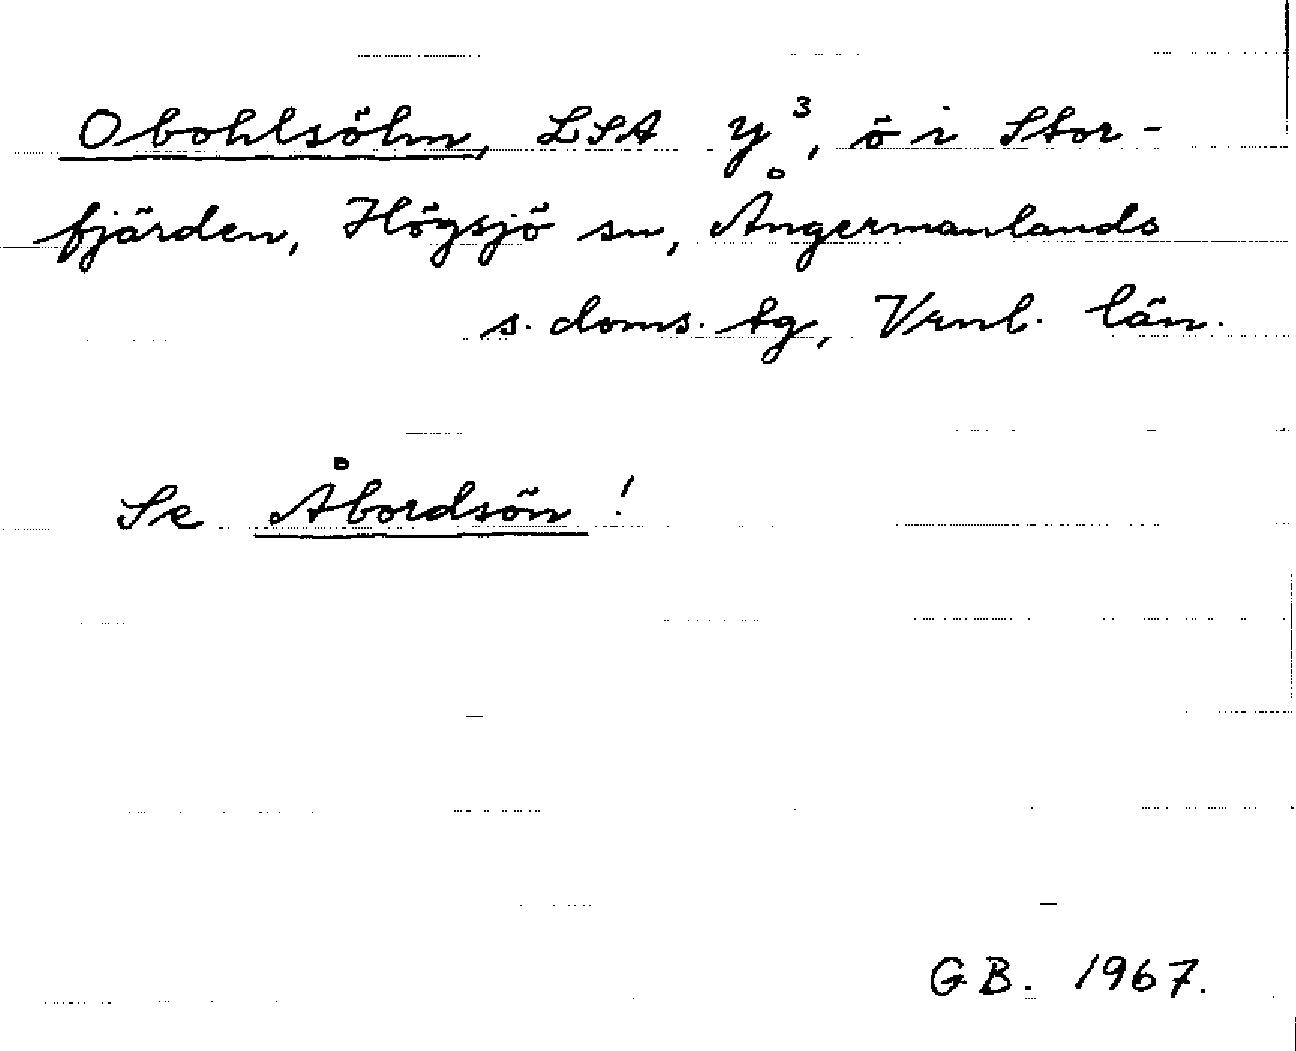 Obohlsöhn, LSA y³, ö i Stor-
fjärden, Högsjö sn, Ångermanlands
s. doms. tg, Vrnl. län.
Se Åbordsön!
GB. 1967.